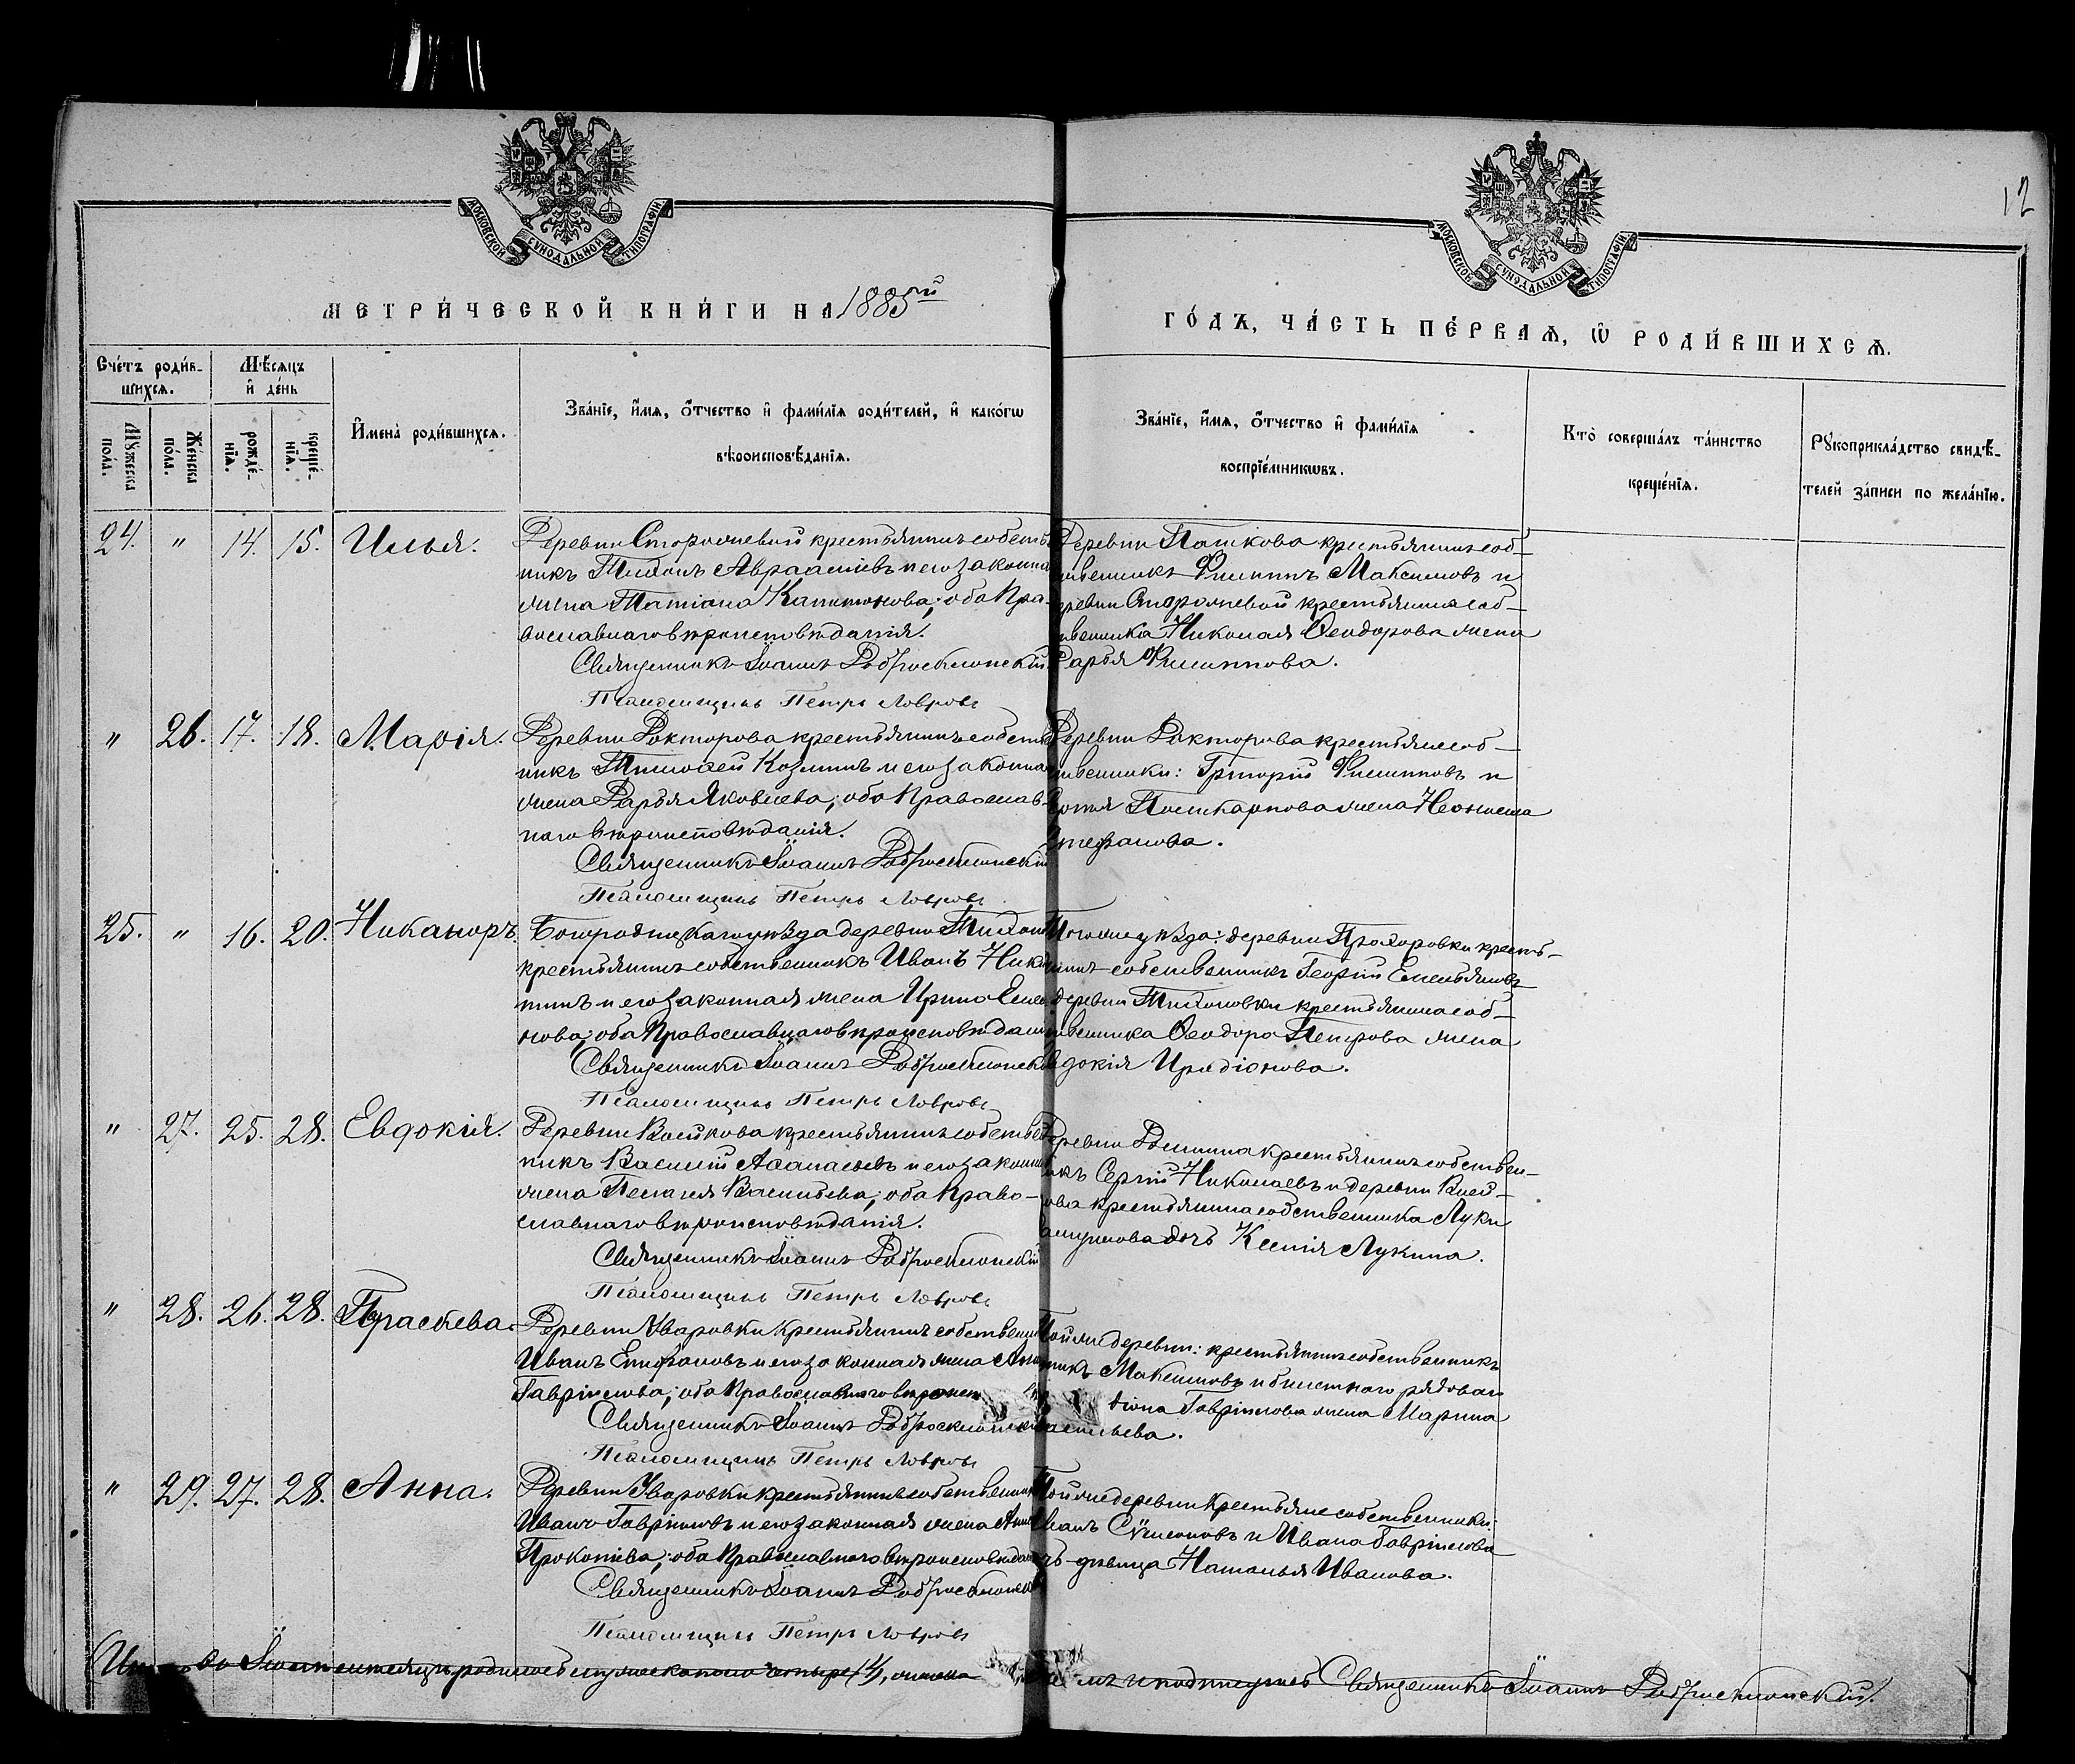 12
МОСКОВСКОЙ СѴНОДАЛЬНОЙ ТИПОГРАФІИ
МОСКОВСКОЙ СѴНОДАЛЬНОЙ ТИПОГРАФІИ
МЕТРИ́ЧЕСКОЙ КНИ́ГИ НА 1885й
ГО́ДЪ, ЧА́СТЬ ПЕ́РВАѦ, Ѡ РОДИ́ВШИХСѦ.
Сче́тъ роди́в-
шихсѧ.
Мѣ́сѧцъ
и де́нь
Мꙋжеска
по́ла.
Же́нска
по́ла.
рожде́-
нїѧ.
креще́-
нїѧ.
Имена̀ роди́вшихсѧ.
Зва́нїе, и́мѧ, о́тчество и фами́лїѧ роди́телей, и како́гѡ
вѣроисповѣ́данїѧ.
Зва́нїе, и́мѧ, о́тчество и фами́лїѧ
воспрїе́мникѡвъ.
Кто̀ соверша́лъ та́инство
креще́нїѧ.
Рꙋкоприкла́дство свидѣ́-
телей за́писи по жела́нїю.
24. " 14. 15. Илья.
Деревни Сторожевой крестьянинъ собств
никъ Тихонъ Авраамiевъ и его законна
жена Татiана Капитонова, оба Пра-
вославнаго вѣроисповѣданiя.
Священникъ Iоаннъ Доброклонскiй
Псаломщикъ Петръ Лавровъ
Деревни Пашкова крестьянинъ соб-
ственникъ Филиппъ Максимовъ и
деревни Сторожевой крестьянина соб-
ственника Николая Ѳеодорова жена
Дарья Филиппова.
" 26. 17. 18. Марiя.
Деревни Докторова крестьянинъ собств
никъ Тимоѳей Козминъ и его законна
жена Дарья Яковлева, оба Православ-
наго вѣроисповѣданiя.
Священникъ Iоаннъ Доброклонскiй
Псаломщикъ Петръ Лавровъ
Деревни Докторова крестьяне соб-
ственники: Григорiй Филипповъ и
Поликарпова жена Неонила
Стефанова.
25. " 16. 20. Никаноръ.
Богородицкаго уѣзда деревни Тихон
крестьянинъ собственникъ Иванъ Ники
тинъ и его законная жена Ирина Емел
нова, оба Православнаго вѣроисповѣдан
Священникъ Iоаннъ Доброклонск
Псаломщикъ Петръ Лавровъ
Того же уѣзда: деревни Прохоровки кресть-
нинъ собственникъ Георгiй Емельяновъ
деревни Тихоновки крестьянина соб-
ственника Ѳеодора Петрова жена
Евдокiя Иродiонова.
" 27. 25. 28. Евдокiя.
Деревни Волкова крестьянинъ собствен
никъ Василiй Аѳанасьевъ и его законн
жена Пелагея Васильева, оба Право-
славнаго вѣроисповѣданiя.
Священникъ Iоаннъ Доброклонскiй
Псаломщикъ Петръ Лавровъ
крестьянинъ собствен-
никъ Сергiй Николаевъ и деревни
крестьянина собственника Луки
дочь Ксенiя Лукина.
" 28. 26. 28. Параскева.
Деревни Уваровки крестьянинъ собственни
Иванъ Епифановъ и его законная жена Анн
Гаврiилова, оба Православнаго вѣроисп
Священникъ Iоаннъ Доброклонскiй
Псаломщикъ Петръ Лавровъ
Той же деревни: крестьянинъ собственникъ
Максимовъ и билетнаго рядоваго
Гаврiилова жена Марина
Васильева.
" 29. 27. 28. Анна.
Деревни Уваровки крестьянинъ собственник
Иванъ Гаврiиловъ и его законная жена Анн
Прокопiева, оба Православнаго вѣроисповѣдан
Священникъ Iоаннъ Доброклонск
Псаломщикъ Петръ Лавровъ
Той же деревни крестьяне собственники:
Иванъ Сѵмеоновъ и Ивана Гаврiилова
дочь дѣвица Наталья Иванова.
во Iюлѣ мѣсяцѣ родилось мужеска пола четыре /4/, женска
и подпишусь Священникъ Iоаннъ Доброклонскiй.